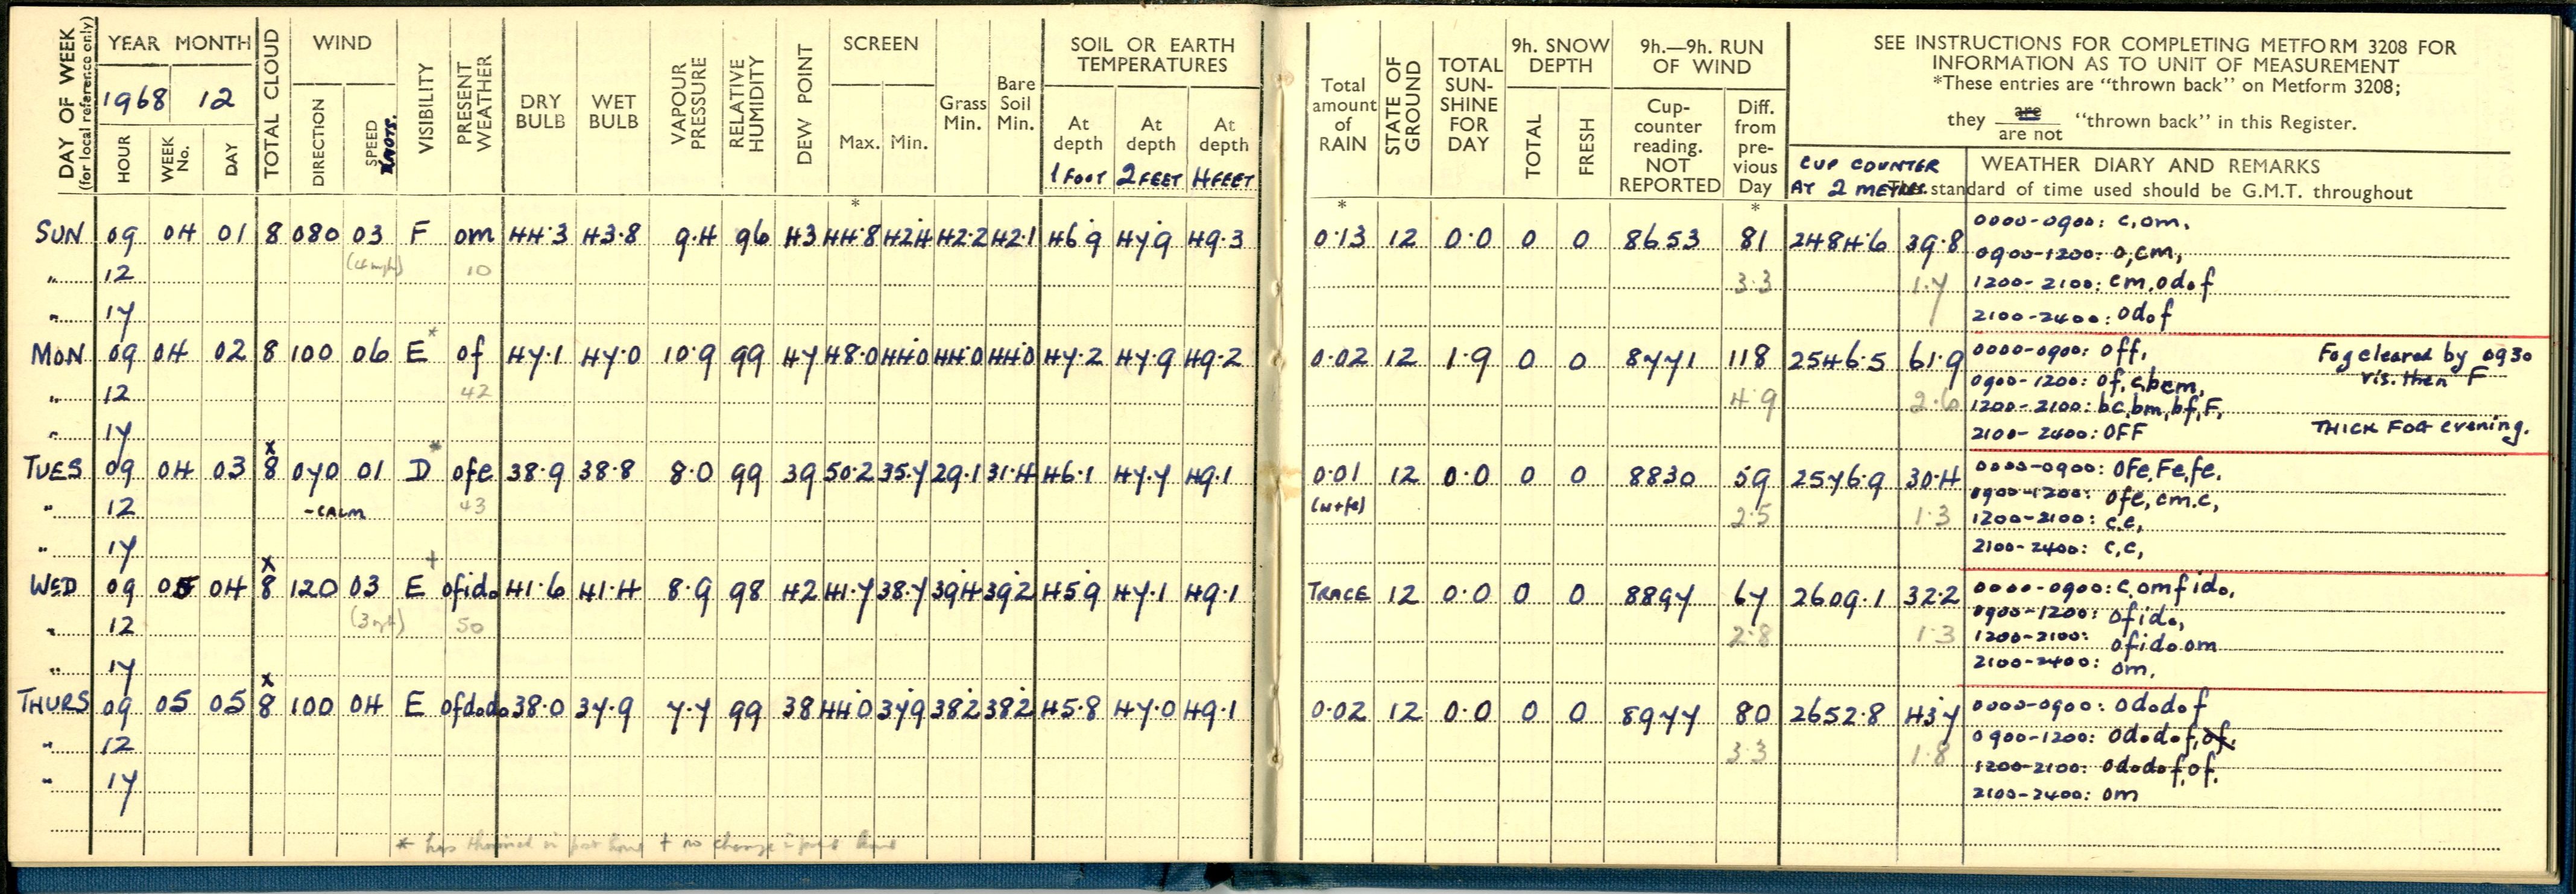 DAY OF WEEK
(for local reference only)
YEAR MONTH
1968 12
HOUR
WEEK No.
DAY
TOTAL CLOUD
WIND
DIRECTION
SPEED
KNOTS.
VISIBILITY
PRESENT WEATHER
DRY BULB
WET BULB
VAPOUR PRESSURE
RELATIVE HUMIDITY
DEW POINT
SCREEN
Max. Min.
Grass Min.
Bare Soil Min.
SOIL OR EARTH TEMPERATURES
At depth 1 FOOT
At depth 2 FEET
At depth 4 FEET
Total amount of RAIN
STATE OF GROUND
TOTAL SUN-SHINE FOR DAY
9h. SNOW DEPTH
TOTAL
FRESH
9h.—9h. RUN OF WIND
Cup-counter reading. NOT REPORTED
Diff. from pre-vious Day
SEE INSTRUCTIONS FOR COMPLETING METFORM 3208 FOR
INFORMATION AS TO UNIT OF MEASUREMENT
*These entries are "thrown back" on Metform 3208;
they are / are not "thrown back" in this Register.
CUP COUNTER
AT 2 METRES
WEATHER DIARY AND REMARKS
standard of time used should be G.M.T. throughout
* * *
SUN 09 04 01 8 080 03 F om 44.3 43.8 9.4 96 43 44.8 42.4 42.2 42.1 46.9 47.9 49.3 0.13 12 0.0 0 0 8653 81 2484.6 39.8 0000-0900: c,om,
" 12 (4 mph) 10 3.3 1.7 0900-1200: o,cm,
1200-2100: cm,odof
" 17 2100-2400: odof
MON 09 04 02 8 100 06 E* of 47.1 47.0 10.9 99 47 48.0 44.0 44.0 44.0 47.2 47.9 49.2 0.02 12 1.9 0 0 8771 118 2546.5 61.9 0000-0900: off, Fog cleared by 0930
vis. then F
" 12 42 4.9 2.6 0900-1200: of,c,bcm,
1200-2100: bc,bm,bf,F,
" 17 2100-2400: OFF THICK FOG evening.
TUES 09 04 03 x8 070 01 D* ofe 38.9 38.8 8.0 99 39 50.2 35.7 29.1 31.4 46.1 47.7 49.1 0.01 12 0.0 0 0 8830 59 2576.9 30.4 0000-0900: OFe,Fe,fe,
" 12 -CALM 43 (w+fe) 2.5 1.3 0900-1200: ofe,cm.c,
1200-2100: c.c,
" 17 2100-2400: c,c,
WED 09 05 04 x8 120 03 E+ ofido 41.6 41.4 8.9 98 42 41.7 38.7 39.4 39.2 45.9 47.1 49.1 TRACE 12 0.0 0 0 8897 67 2609.1 32.2 0000-0900: c,omfido,
" 12 (3 mph) 50 2.8 1.3 0900-1200: ofido,
1200-2100: ofidoom
" 17 2100-2400: om,
THURS 09 05 05 x8 100 04 E ofdodo 38.0 37.9 7.7 99 38 44.0 37.9 38.2 38.2 45.8 47.0 49.1 0.02 12 0.0 0 0 8977 80 2652.8 43.7 0000-0900: ododof
" 12 3.3 1.8 0900-1200: ododof,of,
" 17 1200-2100: ododof,of.
2100-2400: om
* has thinned in past hour + no change in past hour